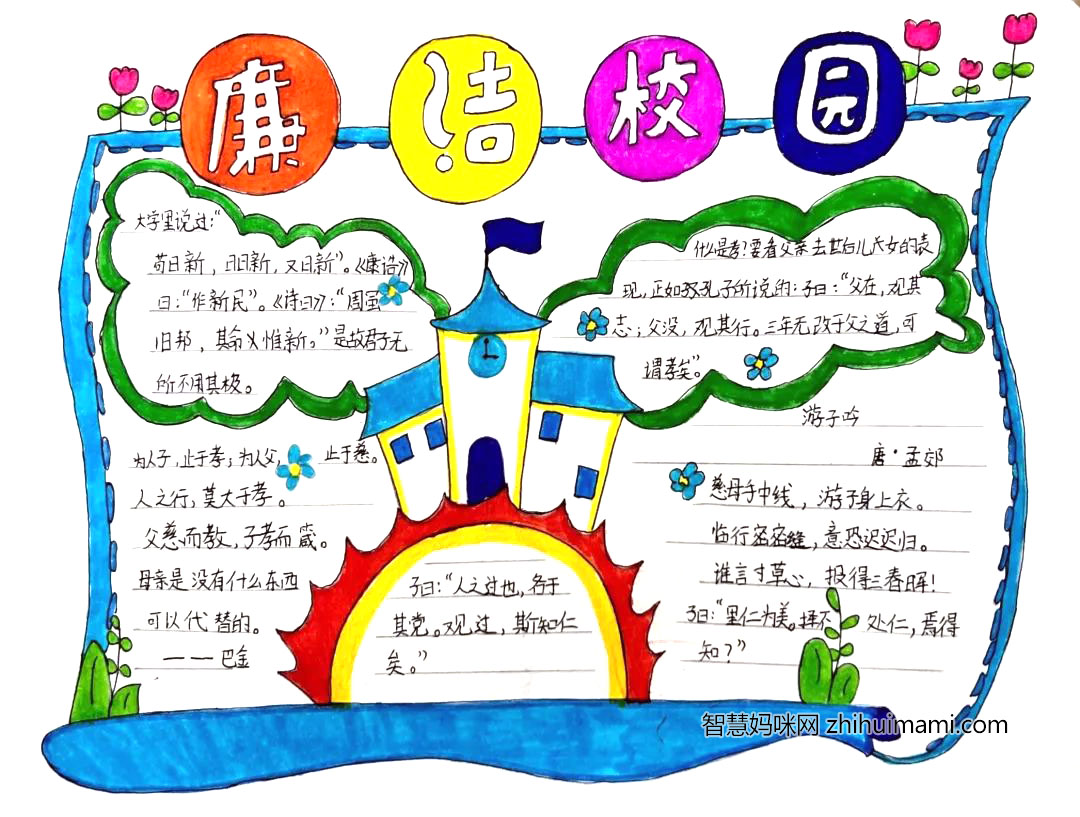 廉洁校园
大学里说过：“
苟日新，日日新，又日新”。《康诰》
曰：“作新民”。《诗曰》：“周虽
旧邦，其命义惟新。”是故君子无
所不用其极。
什么是孝？要看父亲去世后儿子女的表
现，正如孔子所说的：子曰：“父在，观其
志；父没，观其行。三年无改于父之道，可
谓孝矣”。
为人子，止于孝；为人父，止于慈。
人之行，莫大于孝。
父慈而教，子孝而箴。
母亲是没有什么东西
可以代替的。
——巴金
子曰：“人之过也，各于
其党。观过，斯知仁
矣。”
游子吟
唐·孟郊
慈母手中线，游子身上衣。
临行密密缝，意恐迟迟归。
谁言寸草心，报得三春晖！
子曰：“里仁为美。择不处仁，焉得
知？”
智慧妈咪网 zhihuimami.com